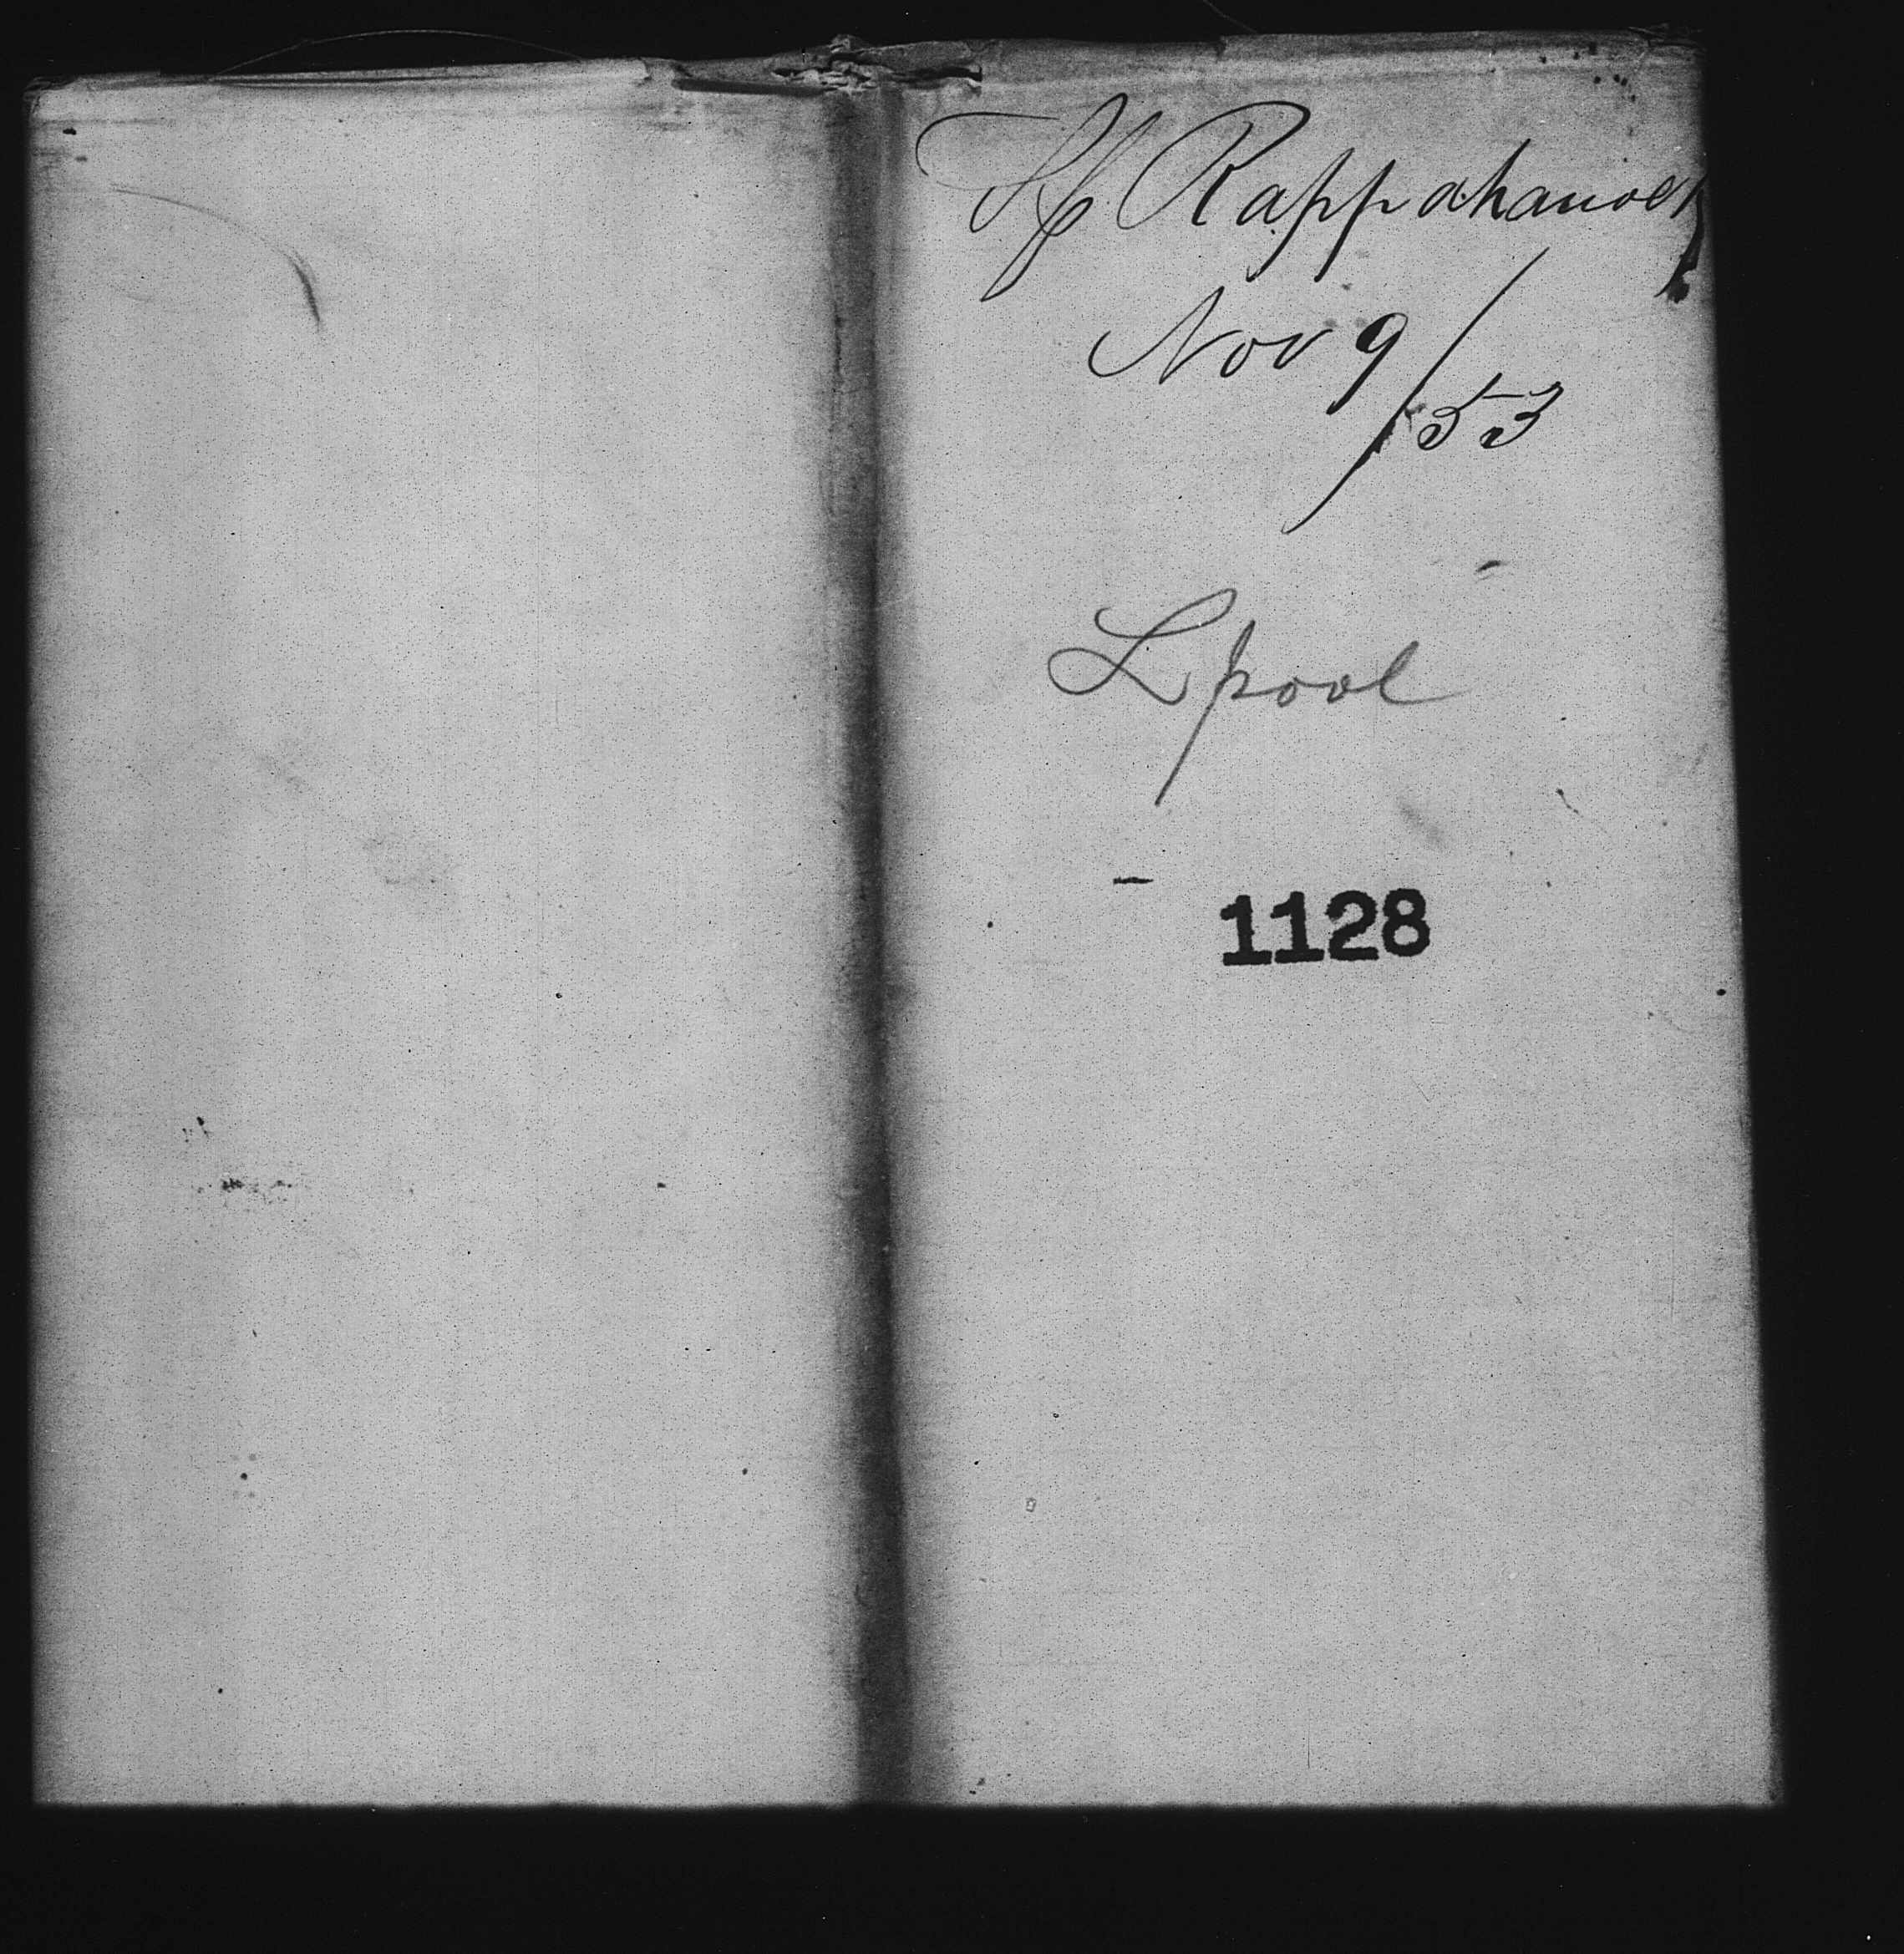 Sp Rappahanock
Nov 9/53
Lpool
1128